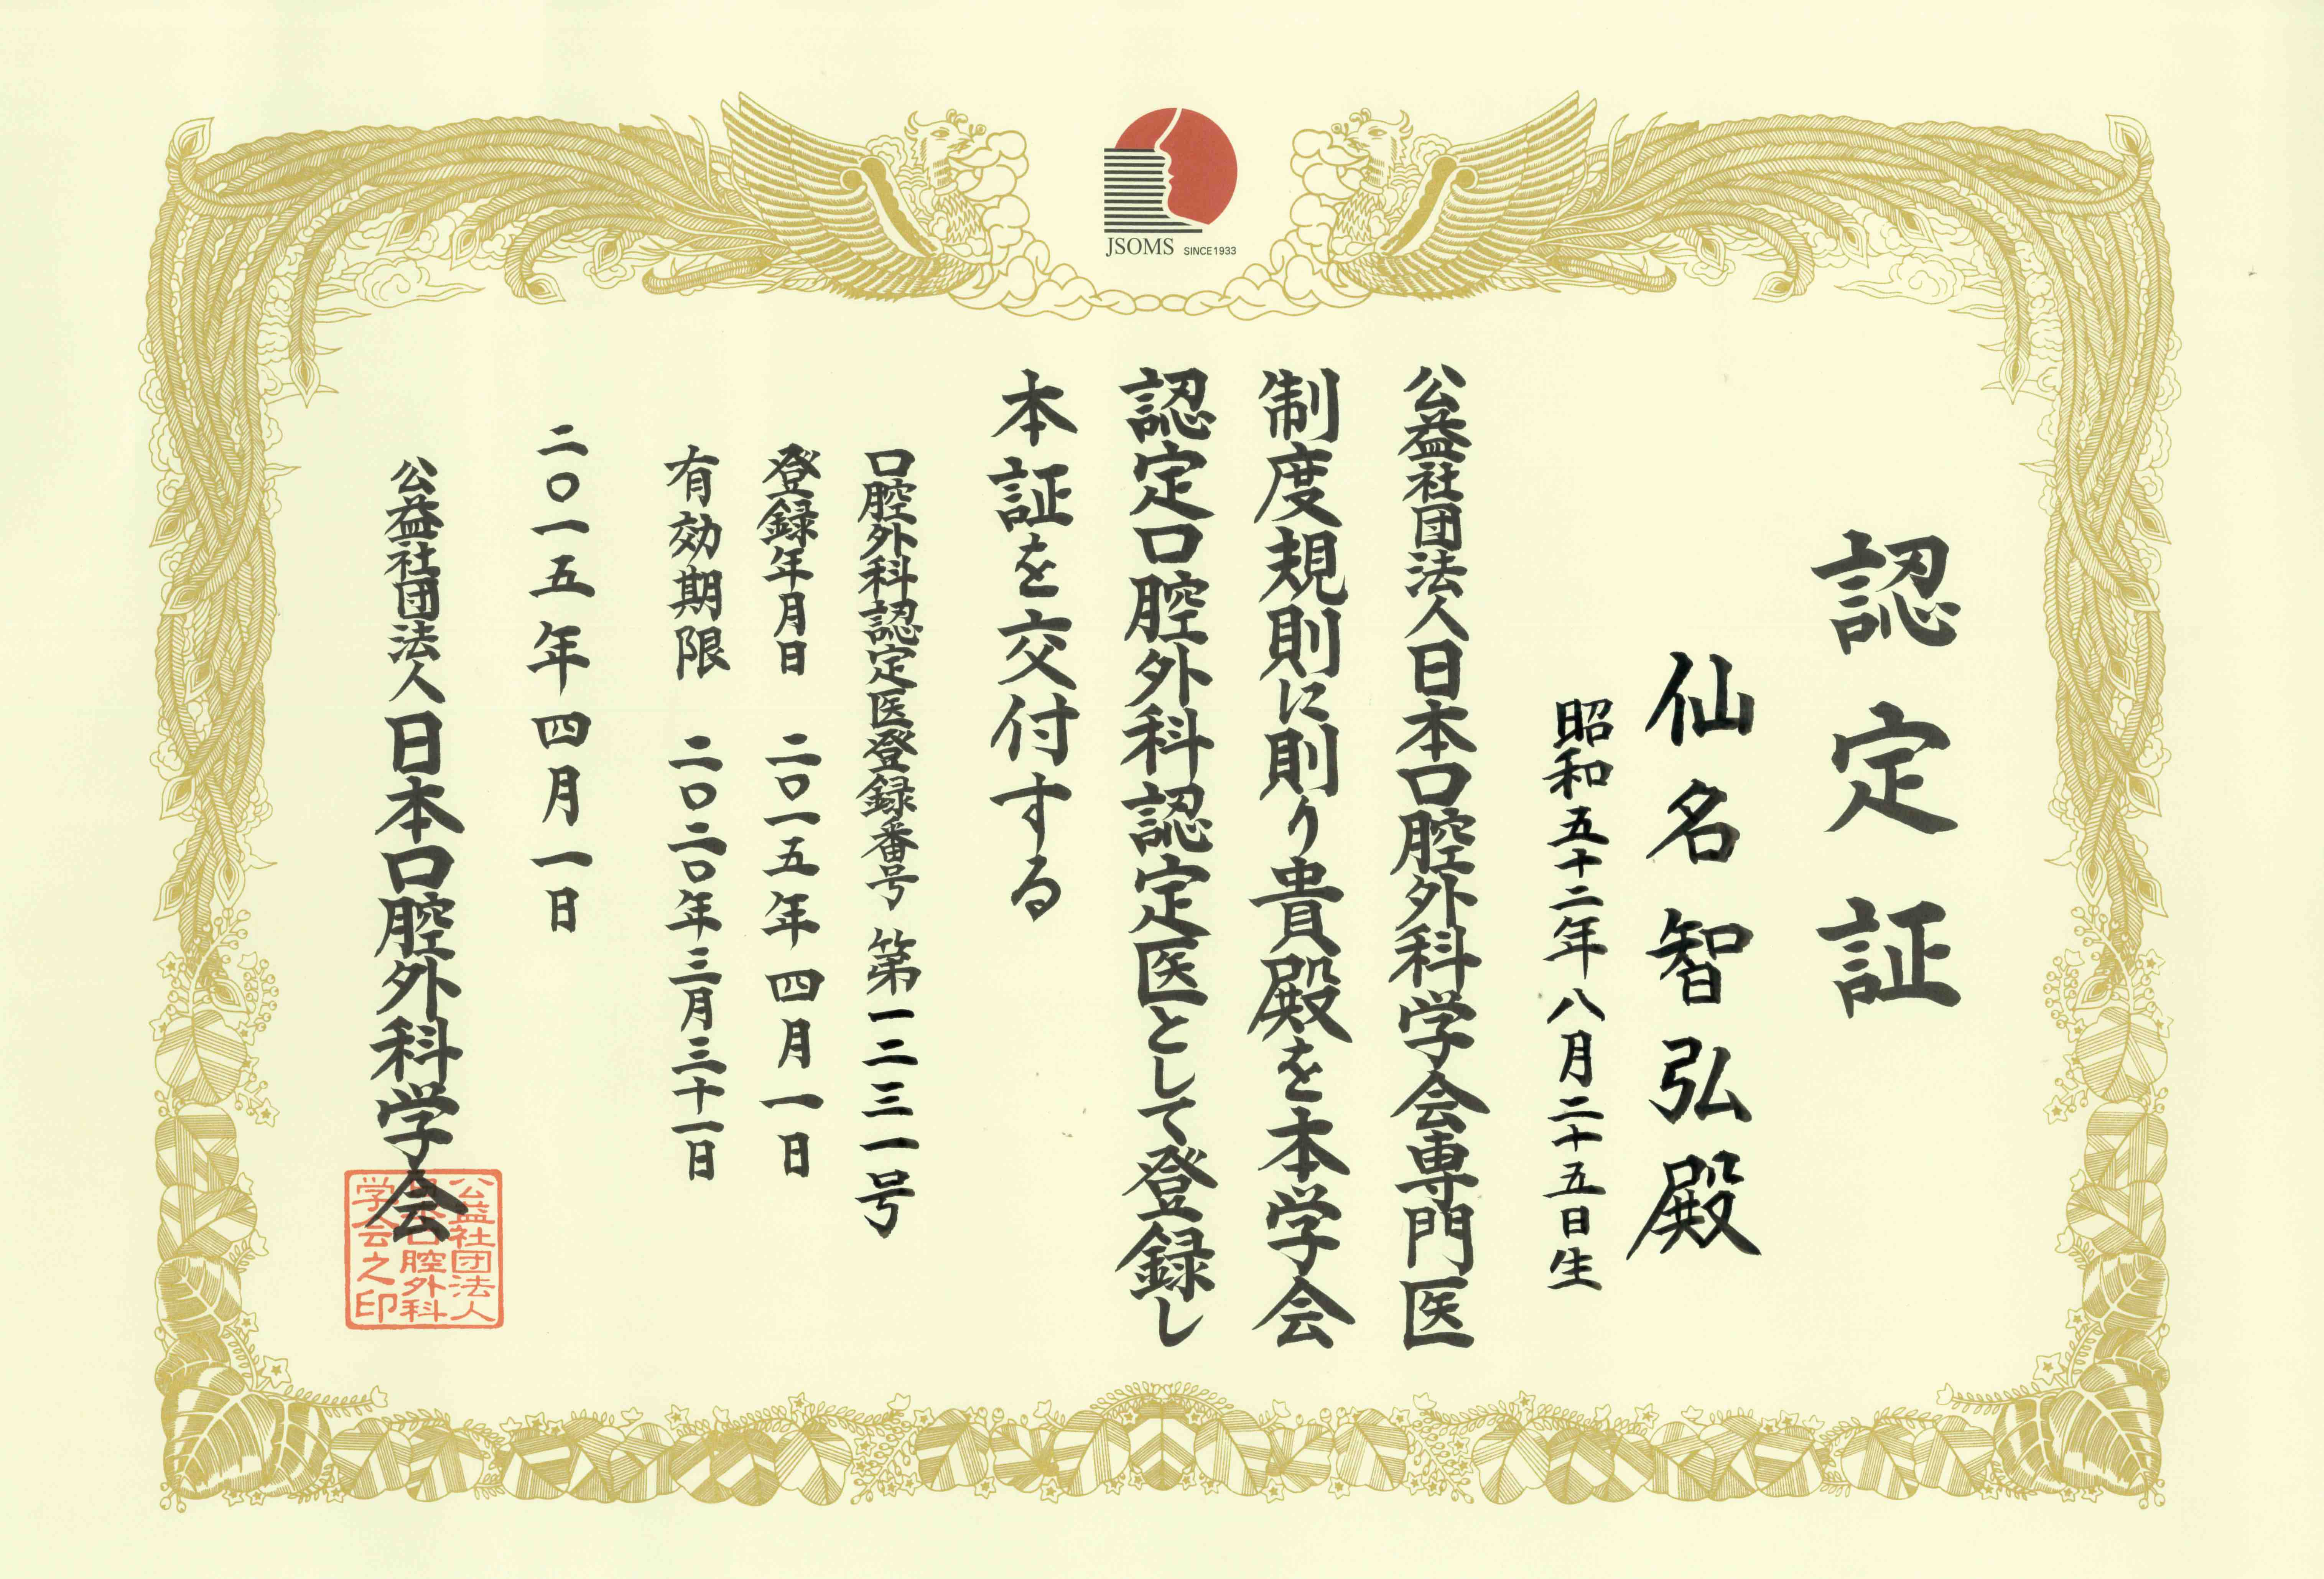 JSOMS SINCE 1933
認定証
仙名智弘殿
昭和五十二年八月二十五日生
公益社団法人日本口腔外科学会専門医
制度規則に則り貴殿を本学会
認定口腔外科認定医として登録し
本証を交付する
口腔外科認定医登録番号 第一二三一号
登録年月日 二〇一五年四月一日
有効期限 二〇二〇年三月三十一日
二〇一五年四月一日
公益社団法人日本口腔外科学会
公益社団法人
日本口腔外科
学会之印